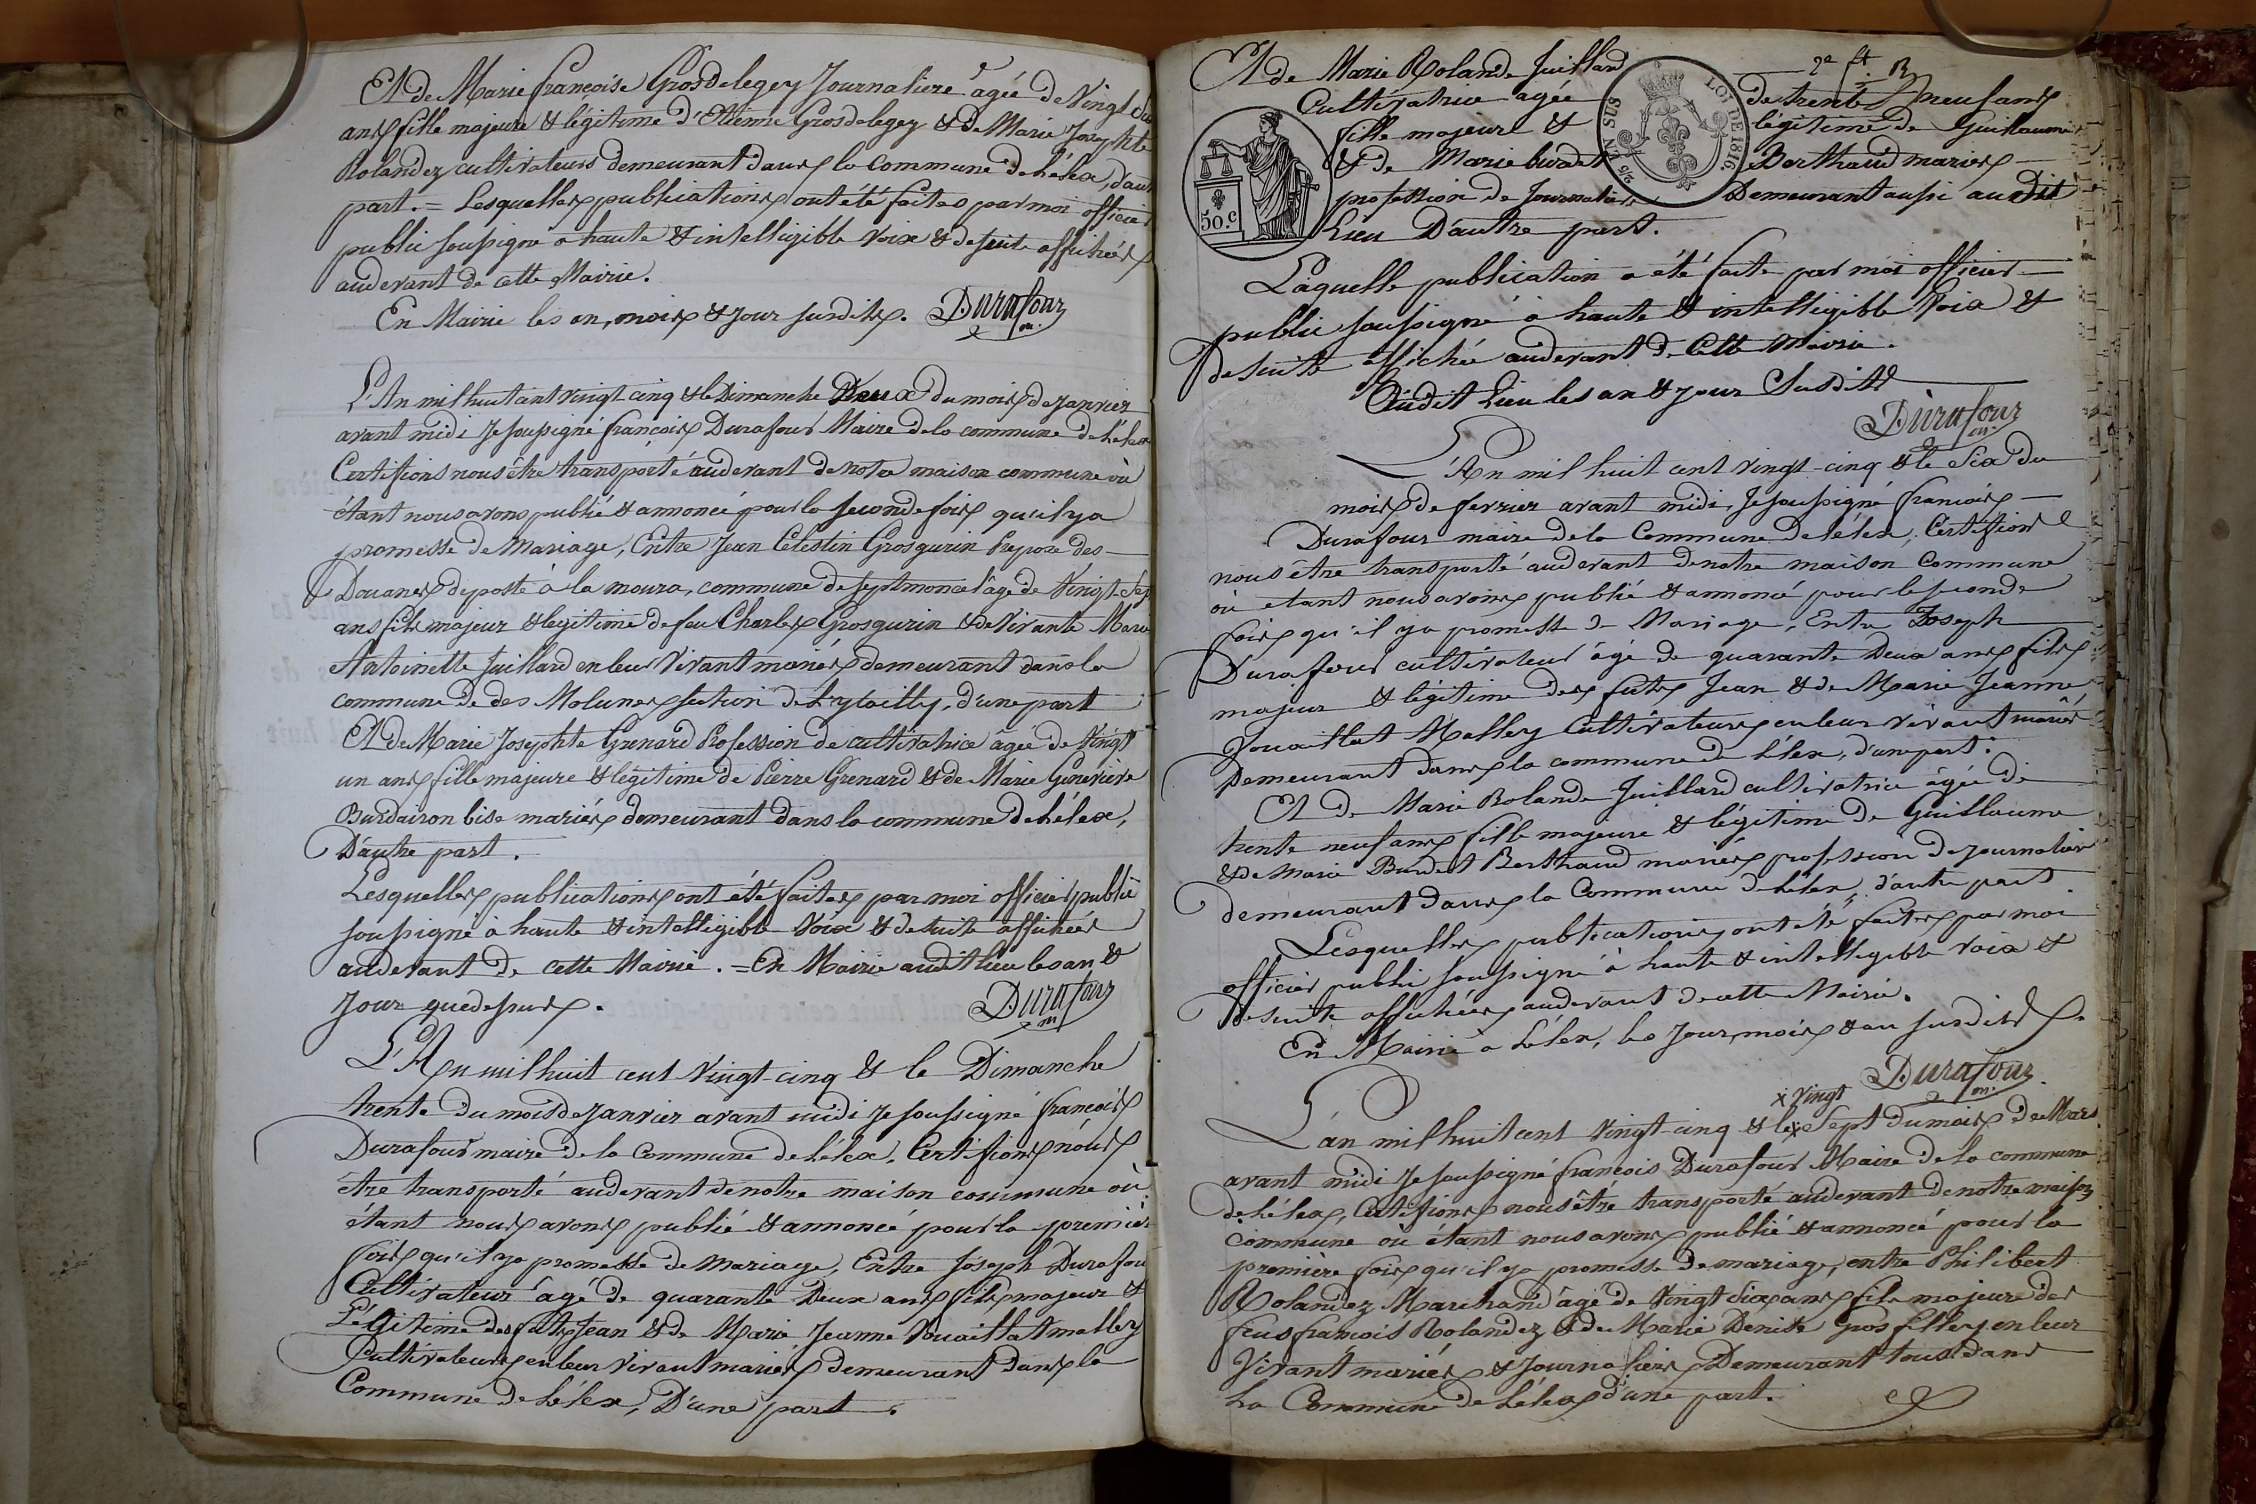 Et de Marie françoise Grosdelegey Journaliere âgée de Vingt
ans fille majeure & légitime d'Etienne Grosdelegey & de Marie Josephte
Rolandez cultivateurs demeurant dans la Commune de Lélex, d'autre
part. = Lesquelles publications ont été faites par moi officier
public soussigné à haute & intelligible voix & de suite affichées
audevant de cette Mairie.
En Mairie les an, mois & jour susdits. Durafour
m.
L'An mil huit cent vingt cinq & le Dimanche Deux du mois de Janvier
avant midi Je soussigné françois Durafour Maire de la commune de Lélex
Certifions nous être transporté audevant de notre maison commune où
étant nous avons publié & annoncé pour la seconde fois qu'il y a
promesse de Mariage, Entre Jean Célestin Grosgurin Préposé des
Douanes de poste à la moura, commune de Septmoncel âgé de Vingt-Sept
ans fils majeur & légitime de feu Charles Grosgurin & de Vivante Marie
Antoinette Juillard en leur Vivant mariés demeurant dans la
commune de des Molunes section de d'une part
Et de Marie Josephte Grenard Profession de cultivatrice âgée de Vingt
un ans fille majeure & légitime de Pierre Grenard & de Marie Genevieve
Burdairon bise mariés demeurant dans la commune de Lélex,
D'autre part.
Lesquelles publications ont été faites par moi officier public
soussigné à haute & intelligible Voix & de suite affichées
audevant de cette Mairie. = En Mairie audit lieu les an &
Jour que dessus. Durafour
m
L'An mil huit cent Vingt-cinq & le Dimanche
trente du mois de Janvier avant midi Je soussigné françois
Durafour maire de la Commune de Lélex, Certifions nous
être transporté audevant de notre maison commune où
étant nous avons publié & annoncé pour la premiére
fois qu'il y a promesse de Mariage, Entre Joseph Durafour
Cultivateur âgé de quarante Deux ans fils majeur &
Légitime des futs Jean & de Marie Jeanne Vouaillat malley
Cultivateurs en leur Vivant mariés demeurant dans la
Commune de Lélex, D'une part.
2e ft
Et de Marie Rolande Juillard
Cultivatrice agée de trente neuf ans
fille majeure & légitime de Guillaume
& de Marie burdet Berthaud mariés
profession de Journaliers Demeurant aussi audit
Lieu D'autre part.
EN SUS
LOI DE 1816.
50.c
Laquelle publication a été faite par moi officier
public soussigné à haute & intelligible Voix &
de suite affichée audevant de Cette Mairie.
Audit Lieu les an & jour Susdits
Durafour
m.
L'An mil huit cent vingt-cinq & le Six du
mois de fevrier avant midi, Je soussigné françois
Durafour maire de la Commune de Lélex, Certifions
nous être transporté audevant de notre maison Commune
où etant nous avons publié & annoncé pour le seconde
fois qu'il y a promesse de Mariage, Entre Joseph
Durafour cultivateur âgé de quarante Deux ans fils
majeur & légitime des futs Jean & de Marie Jeanne
Vouaillat Malley Cultivateurs en leur vivant mariés
Demeurant dans la commune de Lélex, d'une part.
Et de Marie Rolande Juillard cultivatrice âgée de
trente neuf ans fille majeure & légitime de Guillaume
& de Marie Burdet Berthaud mariés profession de journalier
demeurant dans la Commune de Lélex, d'autre part.
Lesquelles publications ont été faites par moi
officier public soussigné à haute & intelligible voix &
de suite affichées audevant de cette Mairie.
En Mairie à Lélex, les Jour, mois & an susdits.
Durafour
m.
x Vingt
L'an mil huit cent vingt-cinq & le x Sept du mois de Mars
avant midi Je soussigné françois Durafour Maire de la commune
de Lélex, Certifions nous être transporté audevant de notre maison
commune où étant nous avons publié & annoncé pour la
première fois qu'il y a promesse de mariage, entre Philibert
Rolandez Marchand âgé de Vingt Six ans fils majeure des
feus françois Rolandez & de Marie Denise Gros filley en leur
Vivant mariés & Journaliers Demeurant tous dans
La Commune de Lélex d'une part.